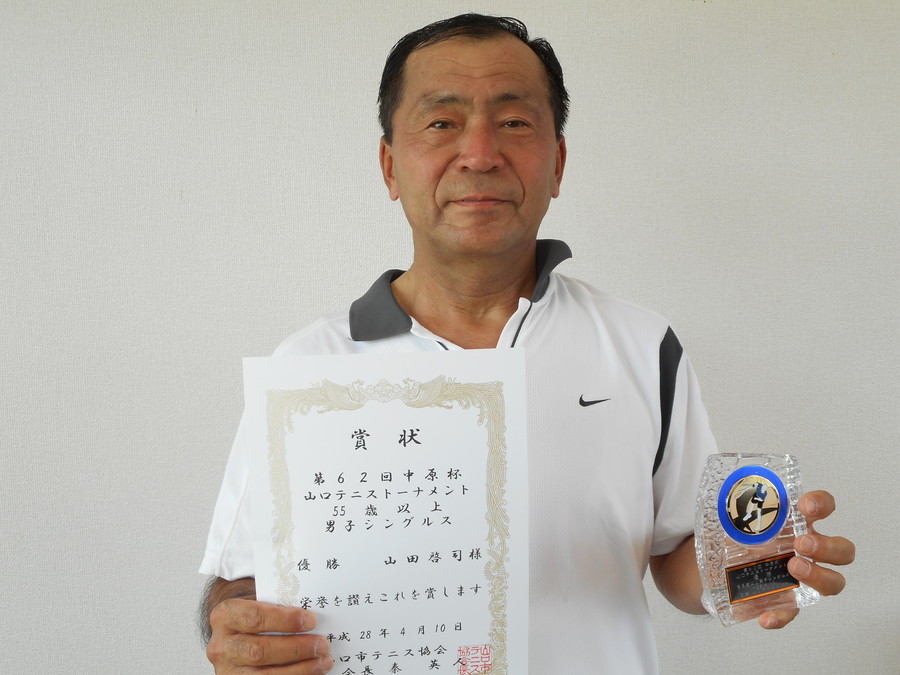 賞状
第62回中原杯
山口テニストーナメント
55歳以上
男子シングルス
優勝 山田啓司様
栄誉を讃えこれを賞します
平成28年4月10日
口市テニス協会
会長 秦 英